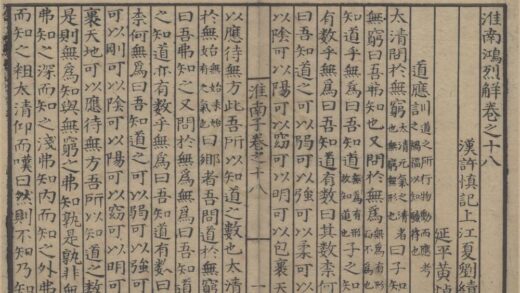 淮南鴻烈解卷之十八
漢許慎記上江夏劉績
延平黃焯
道應訓道之所行物動而應考之禍福以知驗符也
太清問於無窮太清元氣之清者也無窮無形也曰子知
無窮曰吾弗知也又問於無為
知道乎無為曰吾知道子之知
有數乎無為曰吾知道有數曰其數柰何
曰吾知道之可以弱可以強可以柔可
可以陰可以陽可以窈可以明可以包裹天
淮南子卷之十八
一
以應待無方此吾所以知道之數也太清
於無始無始未始有之氣也曰鄉者吾問道於無窮
曰吾弗知之又問於無為無為曰吾知道
之知道亦有數乎無為曰吾知道有數曰
柰何無為曰吾知道之可以弱可以強可
可以剛可以陰可以陽可以窈可以明可
裹天地可以應待無方吾所以知道之數
是則無為知與無窮之弗知孰是孰非無
弗知之深而知之淺弗知內而知之外弗
而知之粗太清仰而嘆曰然則不知乃知